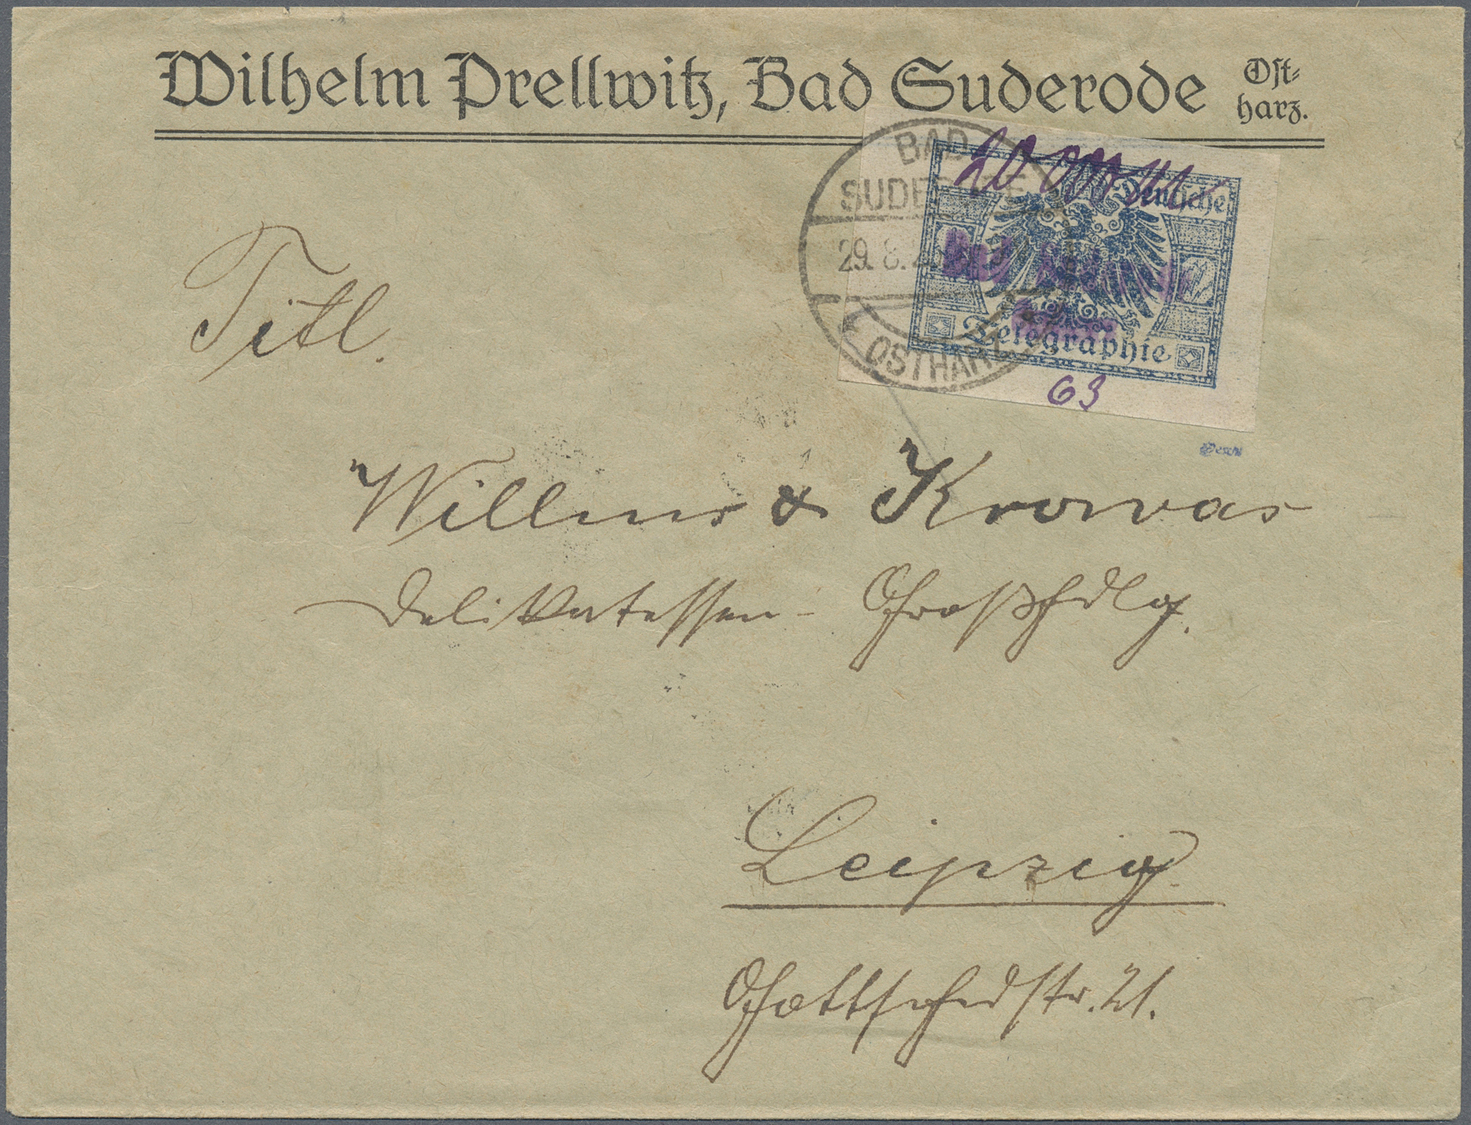 Wilhelm Prellwitz, Bad Suderode Ost-
harz.
BAD
SUDERODE
29. 8.
OSTHARZ
20 000 M
Deutsche
Telegraphie
63
Titl.
Willms & Krowas
Delikatessen- Großhdlg.
Leipzig
Gottschedstr. 21.